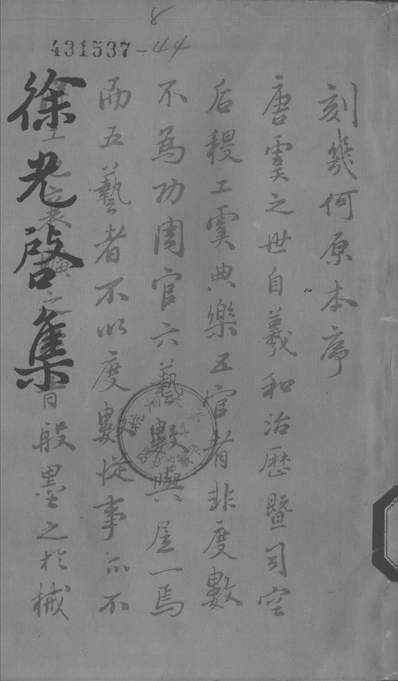 8
431537-44
徐光啓集
刻幾何原本序
唐虞之世自羲和治歷暨司空
后稷工虞典樂五官者非度數
不為功周官六藝數與居一焉
而五藝者不以度數從事亦不
般墨之於械